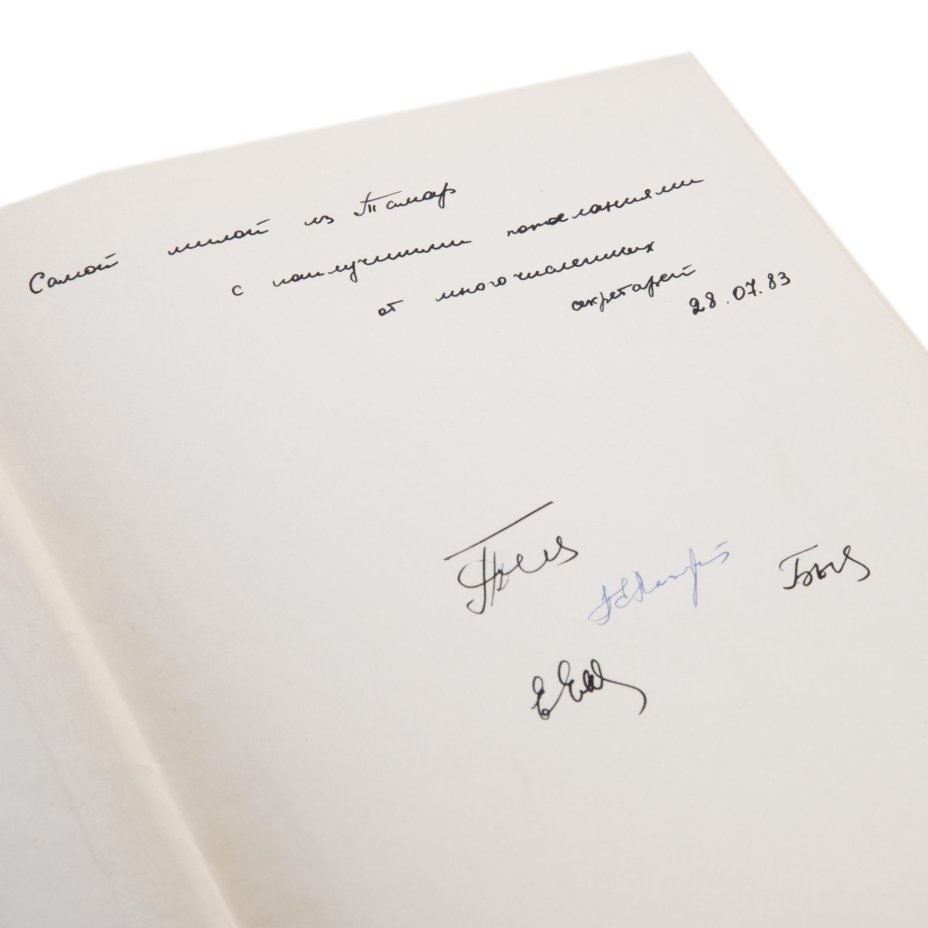 Самой милой из Тамар
с наилучшими пожеланиями
от многочисленных
секретарей
28.07.83